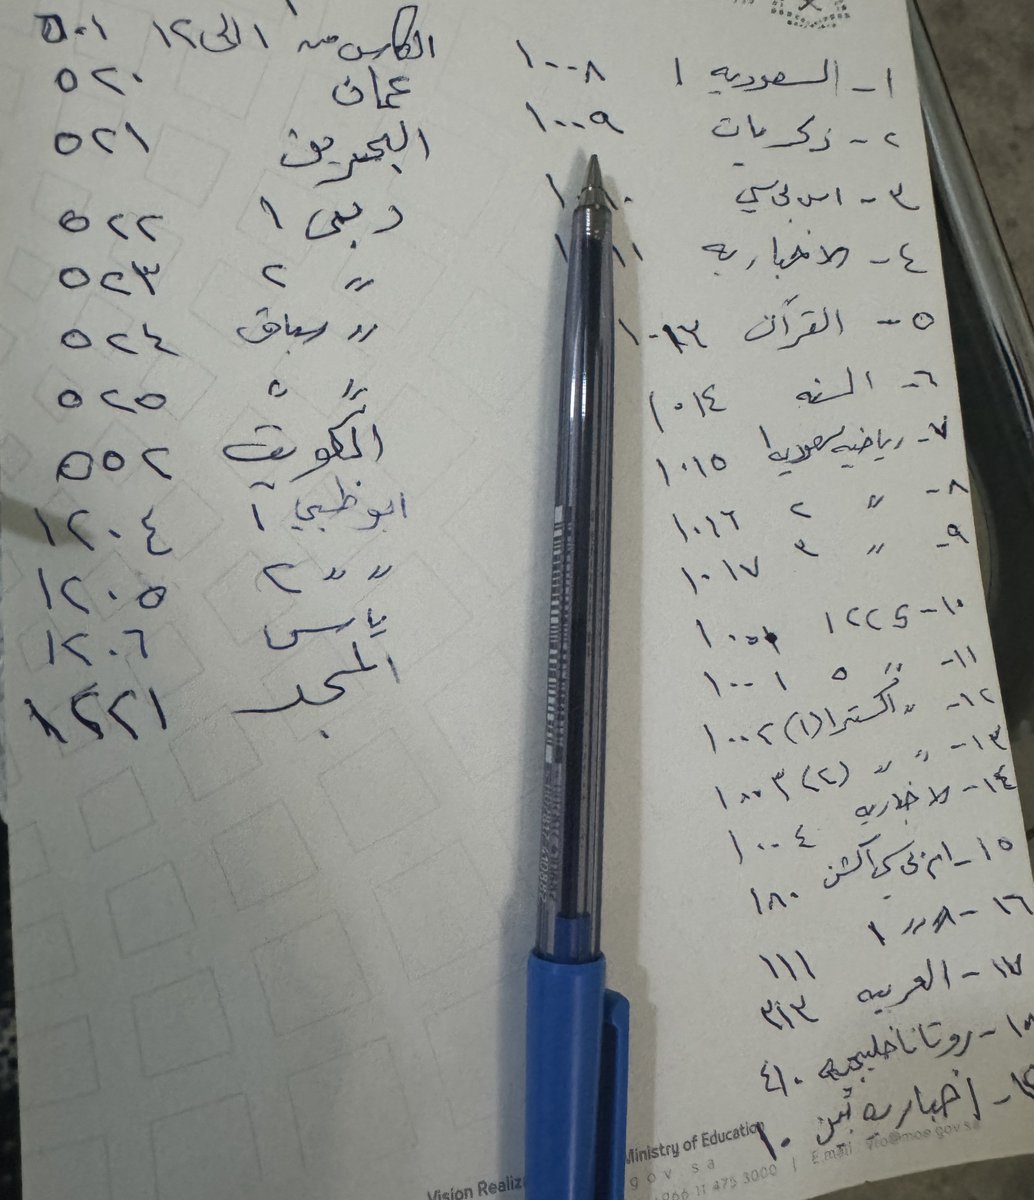 ١- السعوديه ١ ١٠٠٨
٢- ذكريات ١٠٠٩
٣- اس بي سي
٤- الاخباريه
٥- القرآن ١٠١٣
٦- السنه ١٠١٤
٧- رياضيه سعوديه ١ ١٠١٥
٨- 〃 ٢ ١٠١٦
٩- 〃 ٣ ١٠١٧
١٠-
١١- 〃 ٥ ١٠٠١
١٢- 〃 اكسترا (١) ١٠٠٢
١٣- 〃 〃 (٢) ١٠٠٣
١٤- الاخباريه ١٠٠٤
١٥- ام بي سي اكشن ١٨٠
١٦- ١ ١١١
١٧- العربيه ٣١٣
١٨- روتانا خليجيه ٤١٠
١٩- إخباريه
الكاس من ١ الى ١٢ ٥٠١
عمان ٥٢٠
البحرين ٥٢١
دبي ١ ٥٢٢
〃 ٢ ٥٢٣
〃 سباق ٥٢٤
〃 ٥٢٥
الكويت ٥٥٢
ابوظبي ١ ١٢٠٤
〃 〃 ٢ ١٢٠٥
ياس ١٢٠٦
المجد ١٢٢١
Ministry of Education
Vision Realiz
gov sa
966 11 475 3000 | E.mail vro@moe.gov.sa